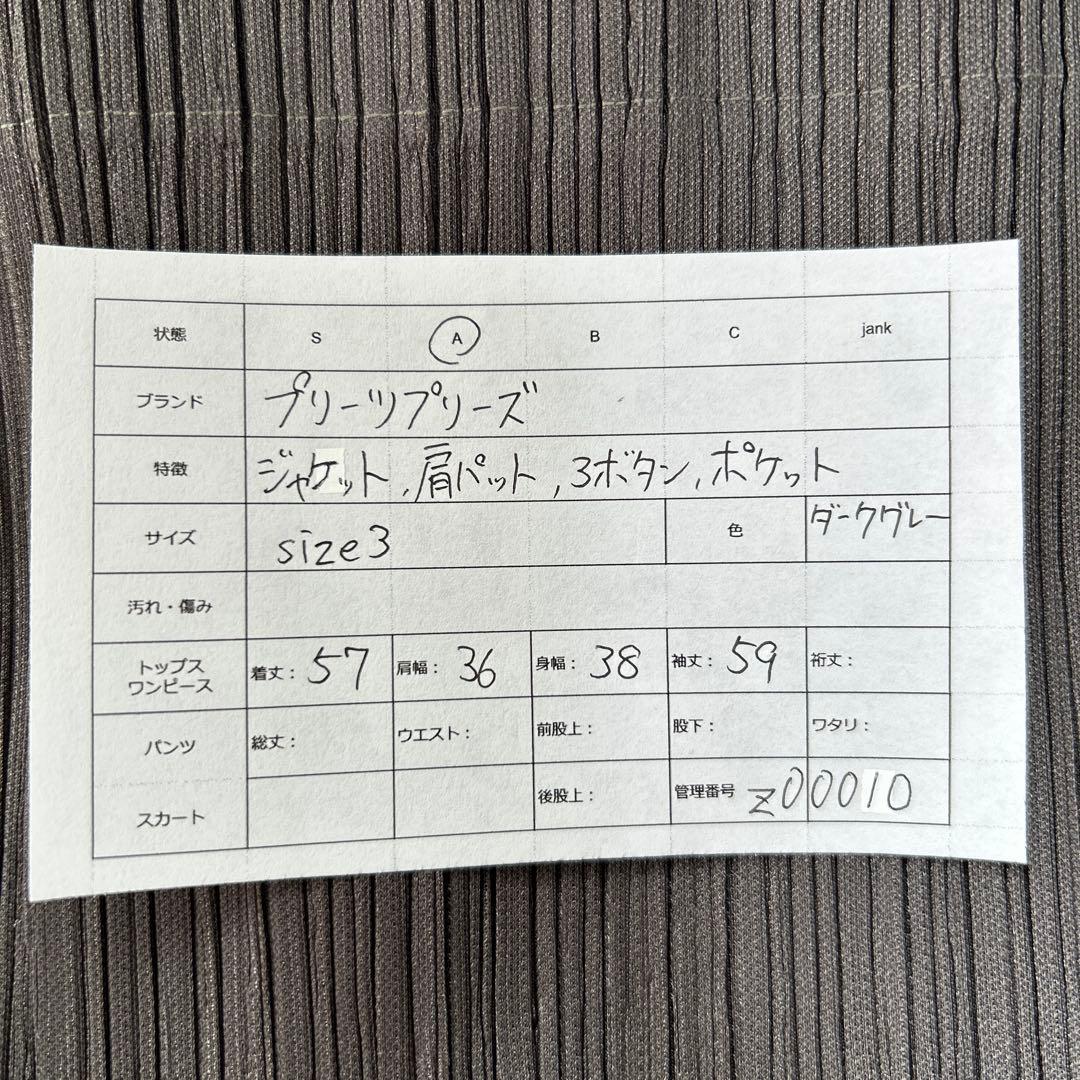 状態 S A B C jank
ブランド プリーツプリーズ
特徴 ジャケット,肩パット,3ボタン,ポケット
サイズ size3 色 ダークグレー
汚れ・傷み
トップス
ワンピース
着丈: 57 肩幅: 36 身幅: 38 袖丈: 59 裄丈:
パンツ 総丈: ウエスト: 前股上: 股下: ワタリ:
スカート 後股上: 管理番号 z00010